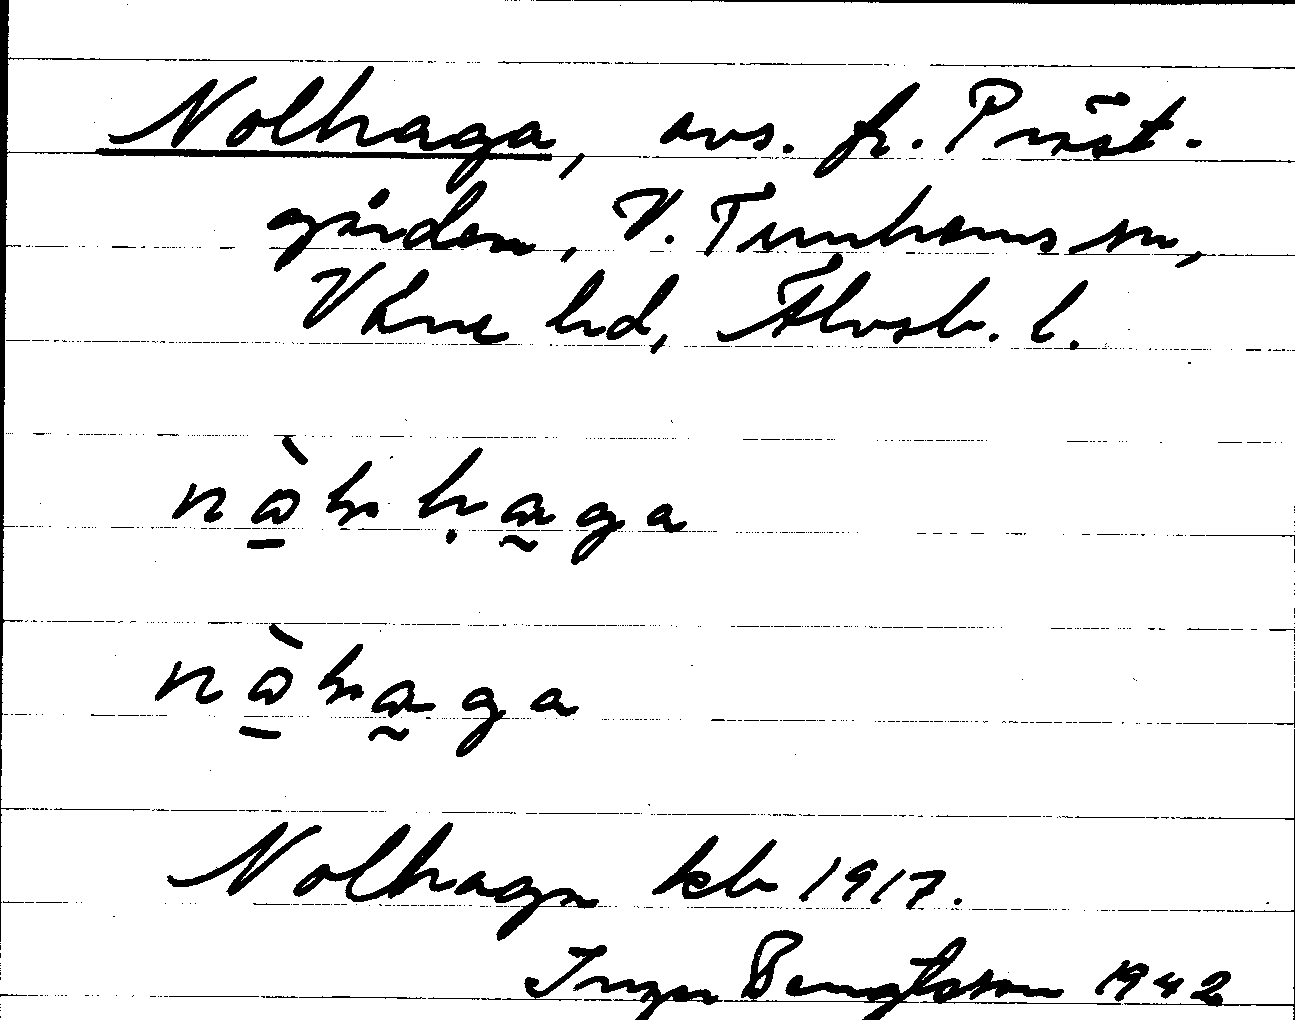 Nolhaga, avs. fr. Präst-
gården, V. Tunhems sn,
Väne hd, Älvsb. l.
Nolhaga kb 1917.
Inga Bengtsson 1942